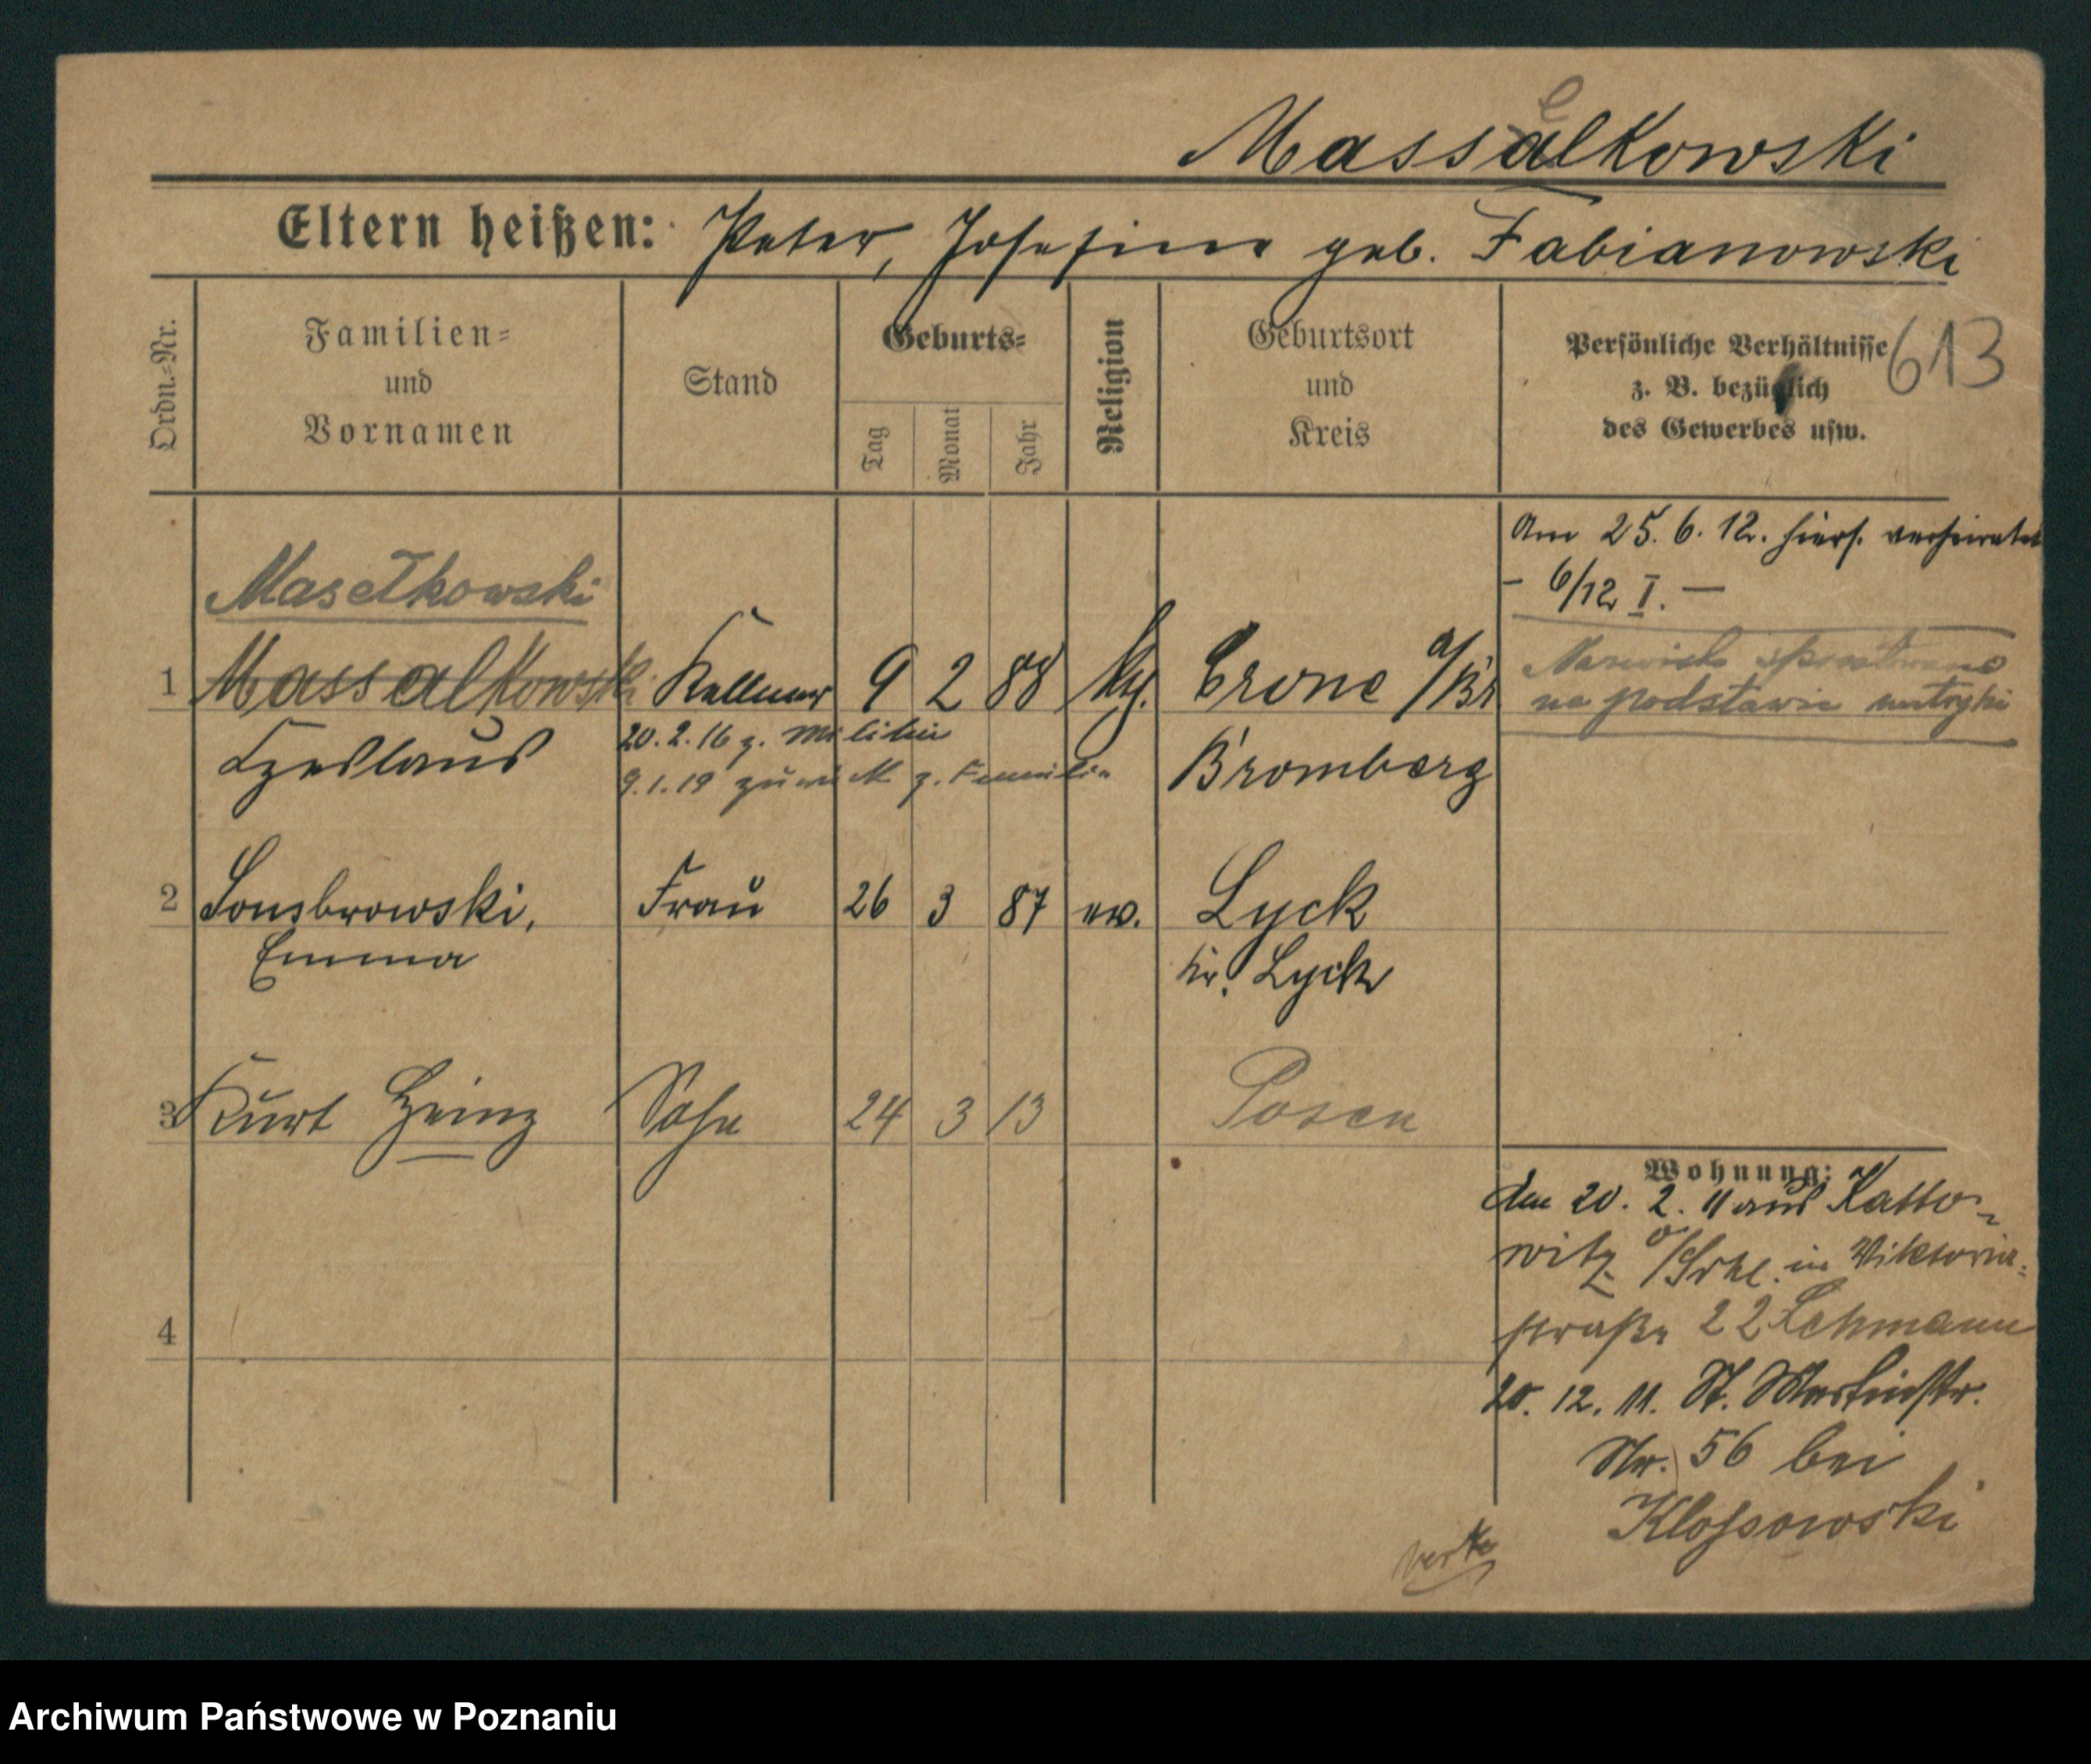 Massalkowski
e
Eltern heißen: Peter, Josefine geb. Fabianowski
Ordn.-Nr.
Familien- und Vornamen
Stand
Geburts-
Tag
Monat
Jahr
Religion
Geburtsort und Kreis
Persönliche Verhältnisse
z. B. bezüglich
des Gewerbes usw.
613
Am 25. 6. 12. hiers. verheiratet
- 6/12 I. -
Masełkowski
1 Massalkowski Kellner 9 2 88 kg. Crone a/Br
na podstawie metryki
Czeslaus
20. 2. 16 z. Militär
9. 1. 19 zurück z. Familie
Bromberg
2 Sonsbrowski, Frau 26 3 87 ev. Lyck
Emma
Kr. Lyck
3 Kurt Heinz Sohn 24 3 13 Posen
Wohnung:
den 20. 2. 11 aus Katto-
witz o/Schl. in Viktoria-
straße 22 Lehmann
4
20. 12. 11. St. Martinstr.
Nr. 56 bei
Klossowski
Archiwum Państwowe w Poznaniu